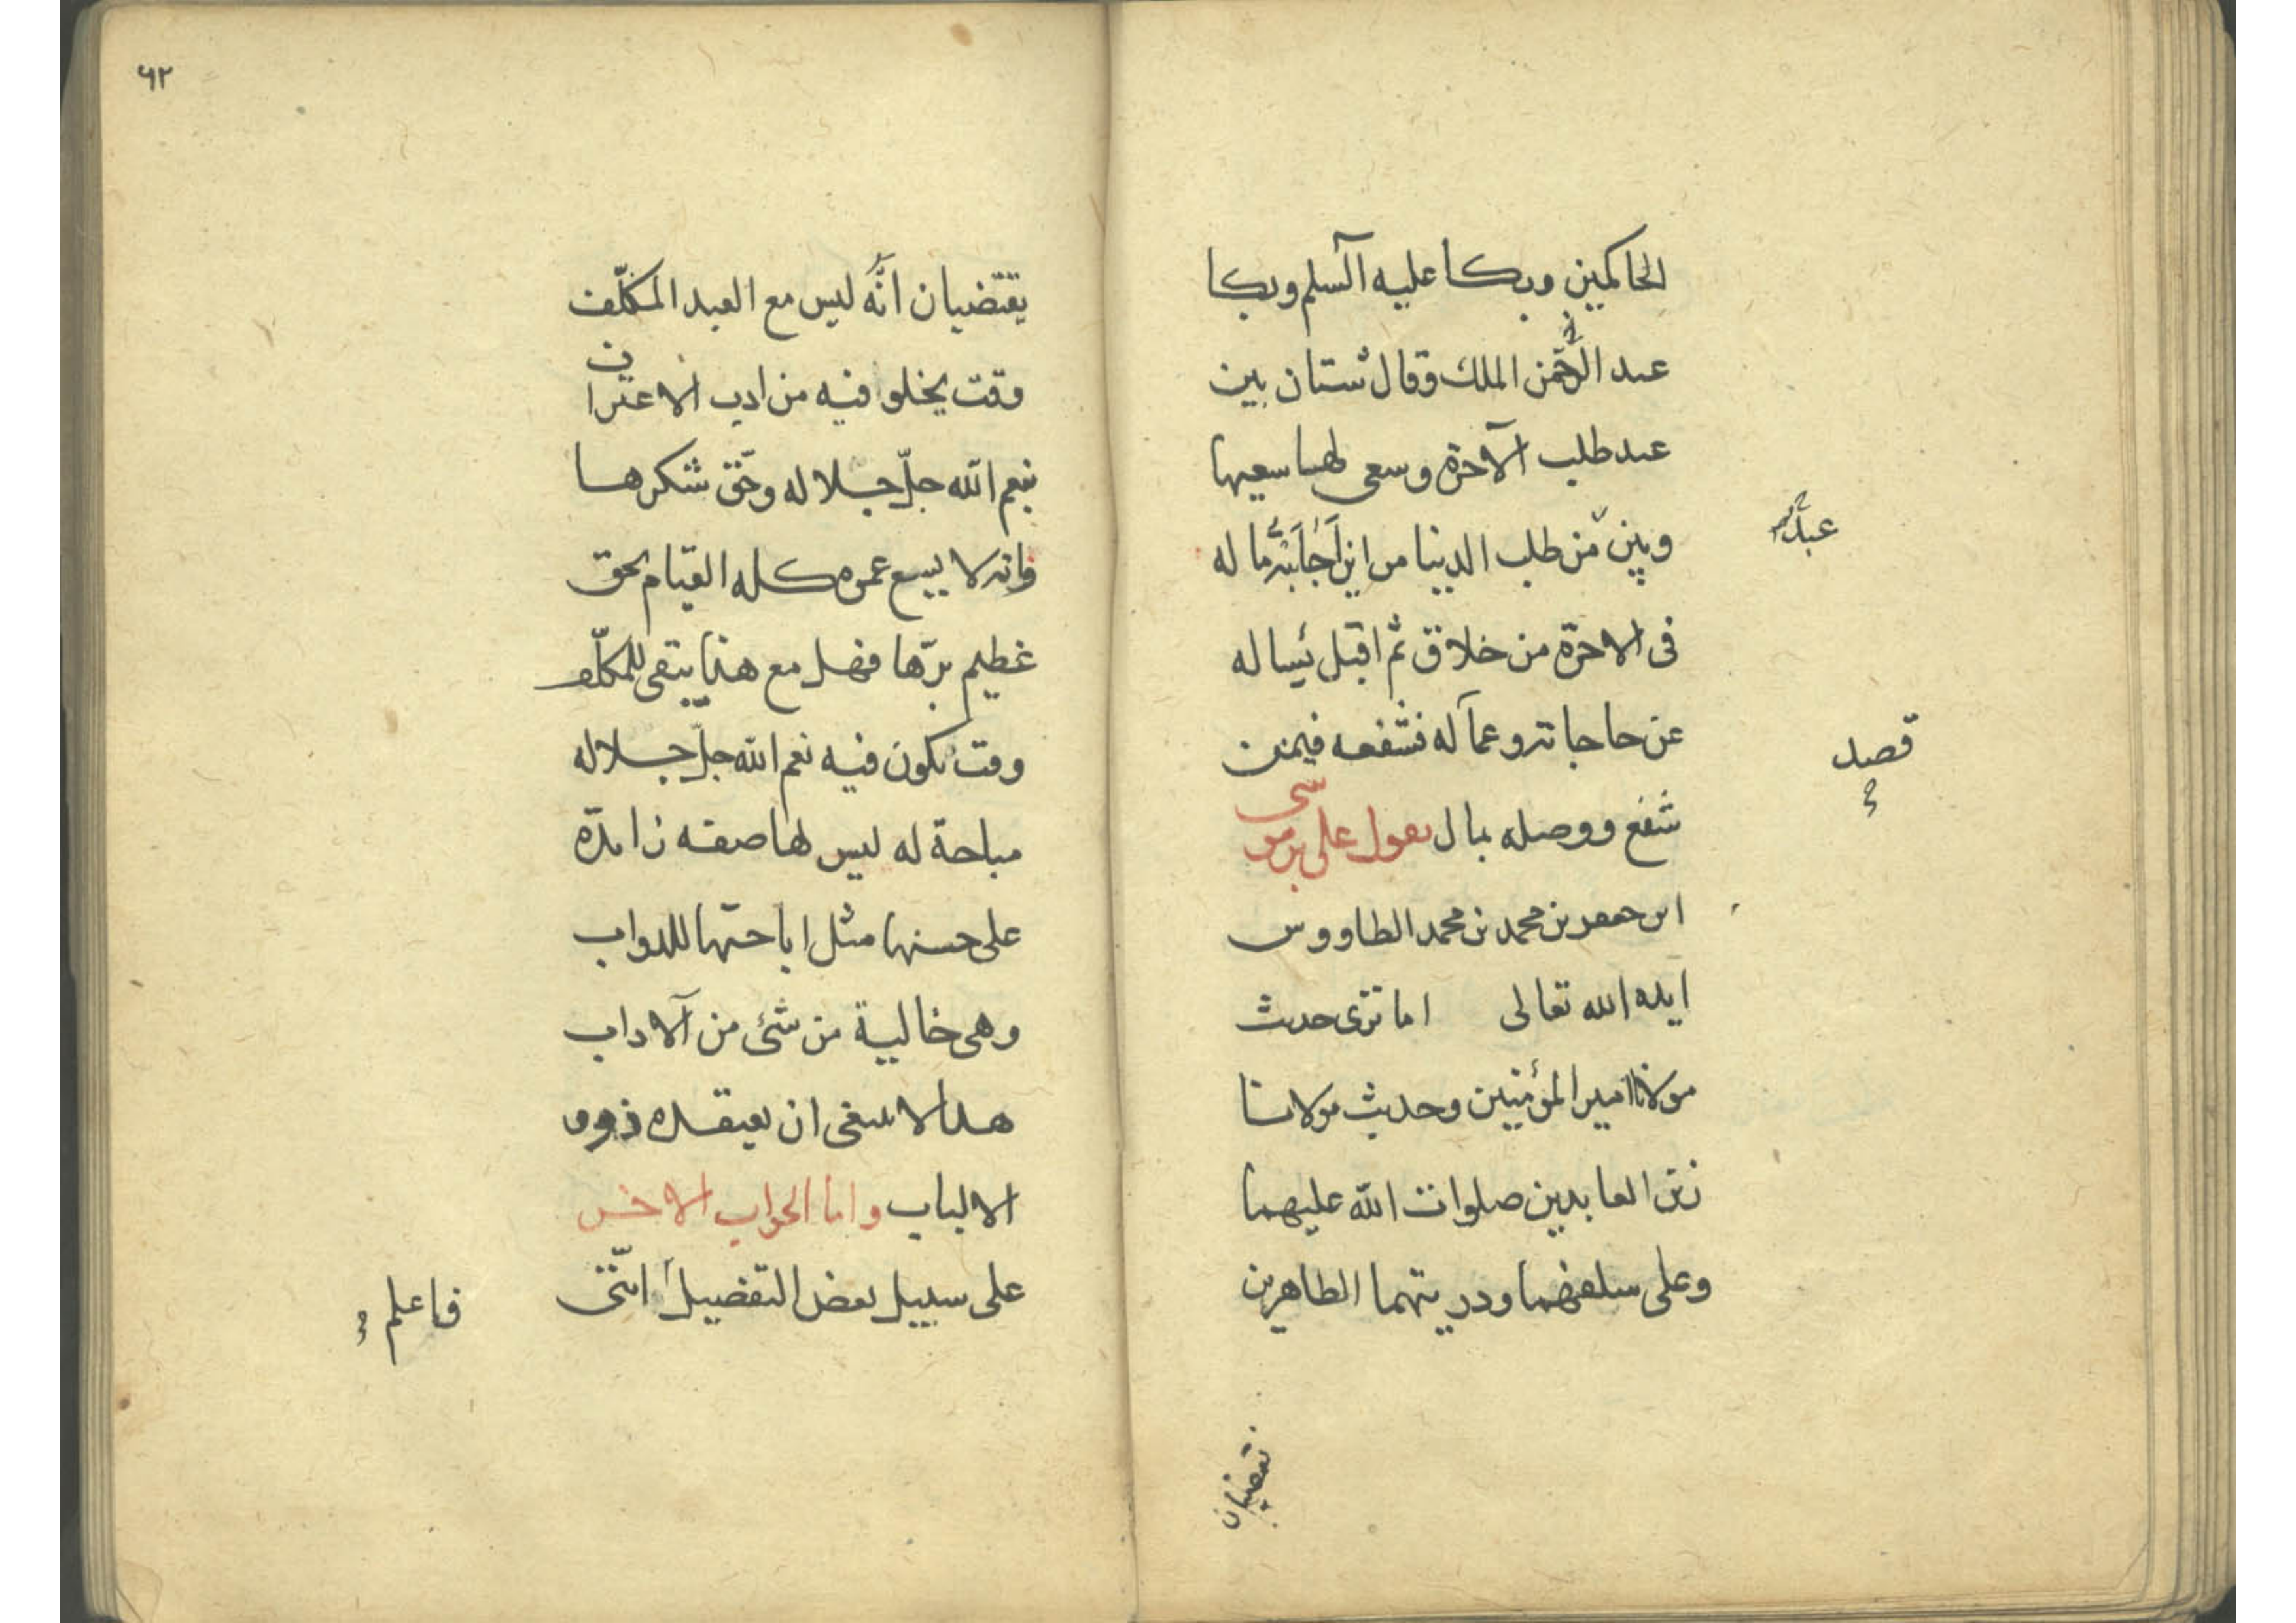 الحاكمين وبكا عليه السلم وبكا
عبد الرحمن الملك وقال شتان بين
عبد طلب الآخرة وسعى لها سعيها
وبين من طلب الدنيا من اين اجابته ما له
فى الاخرة من خلاق ثم اقبل يساله
عن حاجاته وعما له فشفعه فيمن
شفع ووصله بمال يقول على بن موسى
ابن جعفر بن محمد بن محمد الطاووس
ايده الله تعالى اما ترى حديث
مولانا امير المؤمنين وحديث مولانا
زين العابدين صلوات الله عليهما
وعلى سلفهما وذريتهما الطاهرين
قصد
يقتضيان
٦٢
يقتضيان انّه ليس مع العبد المكلّف
وقت يخلو فيه من ادب الاعتراف
بنعم الله جلّ جلاله وحقّ شكرها
وانه لا يسع عمره كله القيام بحق
عظيم برّها فهل مع هذا يبقى للمكلّف
وقت تكون فيه نعم الله جلّ جلاله
مباحة له ليس لها صفة زايدة
على حسنها مثل اباحتها للدواب
وهى خالية من شئ من الآداب
هذا لا ينبغى ان يعتقده ذوو
الالباب واما الجواب الاخر
على سبيل بعض التفضيل اننى
فاعلم